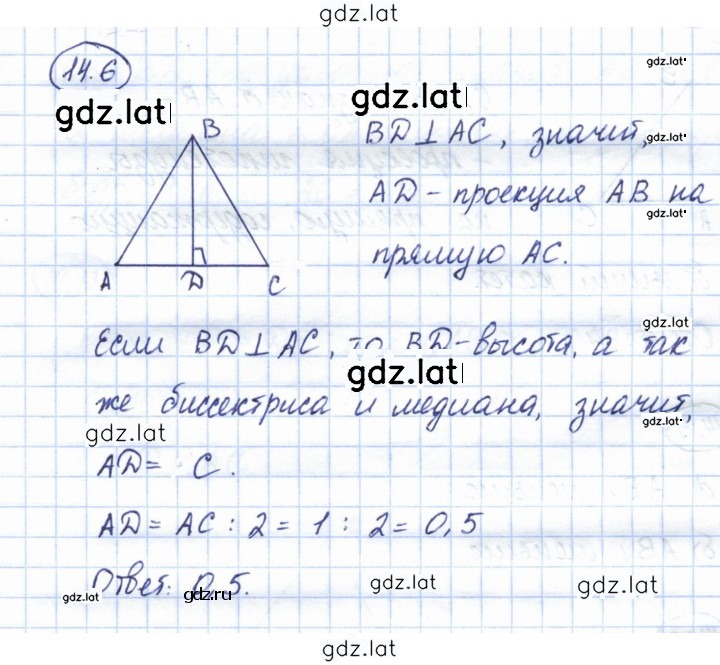 gdz.lat
14.6
gdz.lat
gdz.lat
gdz.lat
B
BD⊥AC, значит,
gdz.lat
AD - проекция AB на
gdz.lat
прямую AC.
A D C
gdz.lat
Если BD⊥AC, то BD-высота, а так
gdz.lat
же биссектриса и медиана, значит,
gdz.lat
gdz.lat
AD= C.
AD = AC : 2 = 1 : 2 = 0,5
Ответ: 0,5.
gdz.lat
gdz.ru
gdz.lat
gdz.lat
gdz.lat